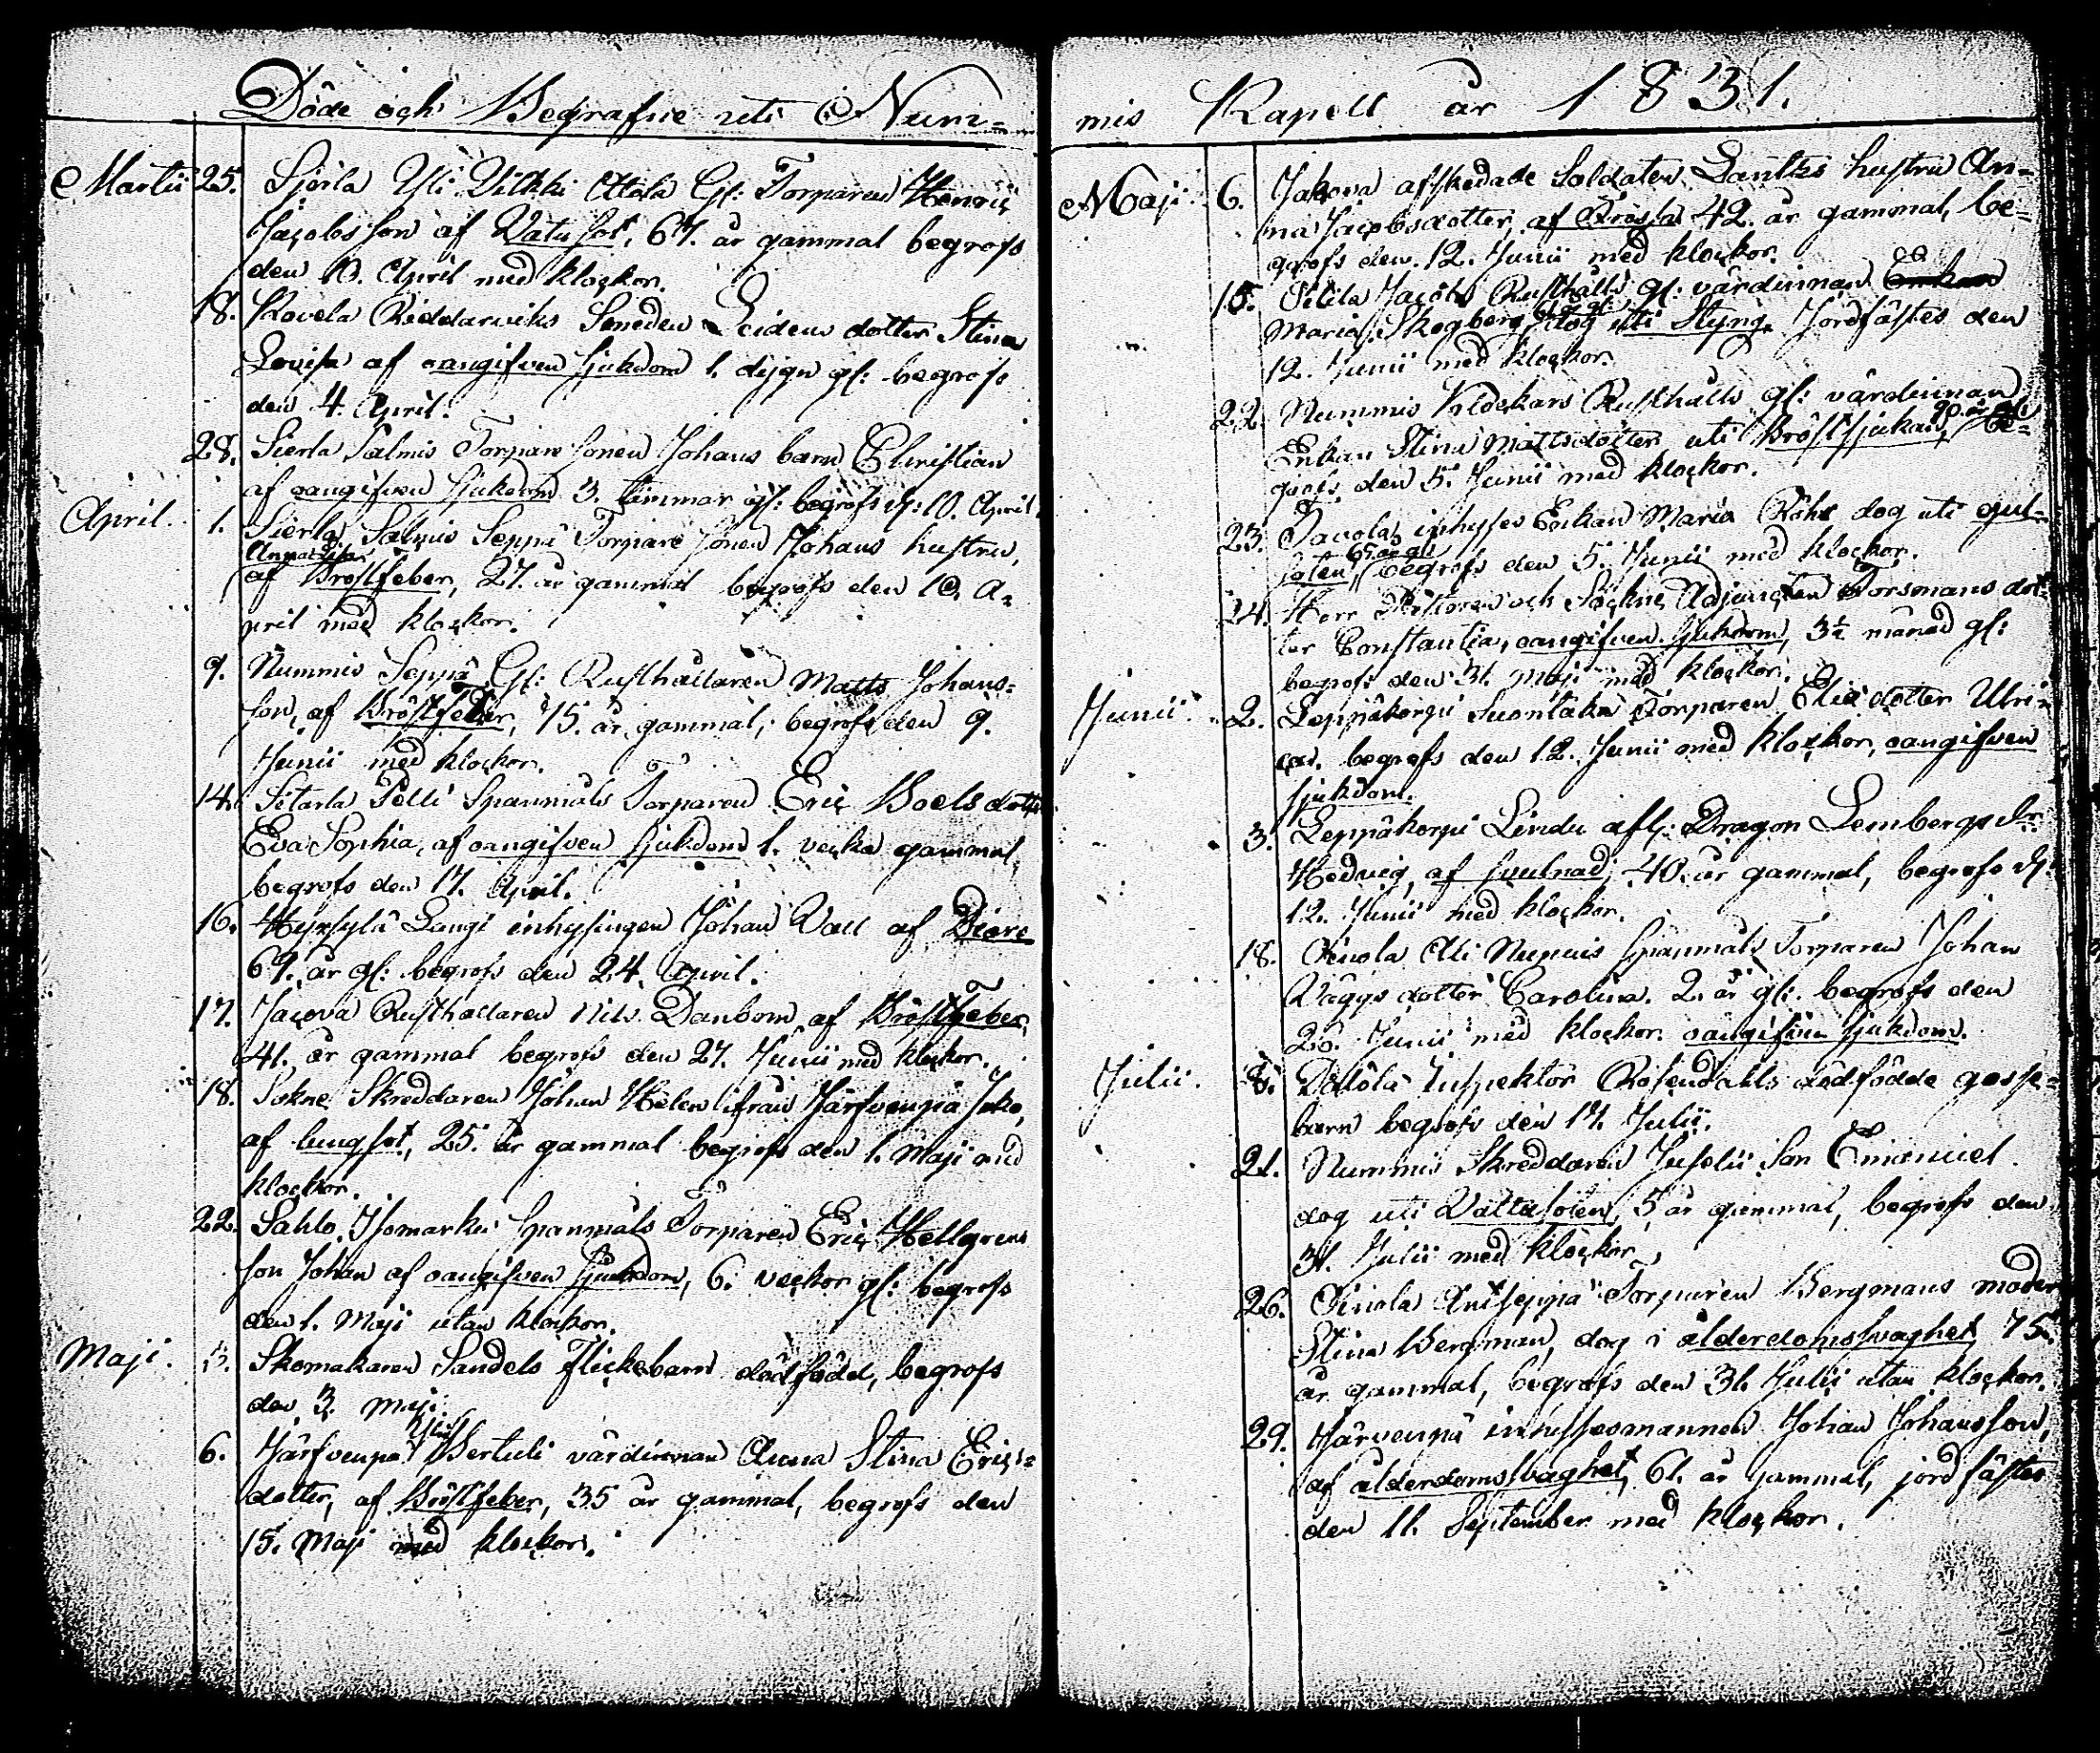 Döde och Begrafne uti Num-
Martii 25. Sjerla Yli Vilkki Attila Gl: Torparen Henric
Jacobsson af Vatusot, 67. år gammal begrofs
den 10. April med klockor.
18. Kovela Riddarviks Smeden Leidens dotter Stina
Lovisa af oangifven sjukdom 1. dygn gl: begrofs
den 4. April.
28. Sierla Salmis Torpare sonen Johans barn Christian
af oangifven sjukdom 3. timmar gl: begrofs d: 10. April.
April. 1. Sierla, Salmis Seppä Torpare sonen Johans hustru,
Anna Lisa
af Bröstfeber, 27. år gammal begrofs den 10. A-
pril med klockor.
9. Nummis Seppä Gl: Rusthållaren Matts Johans-
son, af Bröstfeber, 75. år gammal, begrofs den 9.
Junii med klockor.
14. Sitarla Pelli Spanmåls Torparen Eric Boels dotter
Eva Sophia, af oangifven sjukdom 1. vecka gammal
begrofs den 17. April.
16. Hyrsylä Langi inhysingen Johan Vall af
69. år gl: begrofs den 24. April.
17. Jacova Rusthållaren Nils Danbom af Bröstfeber,
41. år gammal begrofs den 27. Junii med klockor.
18. Sokne Skreddaren Johan Helen ifrån Järfvenpä
af lungsot, 25. år gammal begrofs den 1. Maji med
klockor.
22. Sahlo, Isomarku Spanmåls Torparen Eric Hellgrens
son Johan af oangifven sjukdom, 6. veckor gl: begrofs
den 1. Maji utan klockor.
Maji. 3. Skomakaren Sandels Flickebarn dödfödd, begrofs
den 3. Maji.
6. Järfvenpä Bertuli värdinnan Anna Stina Erics-
dotter, af Bröstfeber, 35 år gammal, begrofs den
15. Maji med klockor.
mis Kapell år 1831.
Maji 6. Jakova afskedade Soldaten hustru An-
na Jacobsdotter, af 42. år gammal, be-
grofs den 12. Junii med klockor.
15. Jacobs Rusthålls gl: värdinnan Enkan
Maria Skogberg dog uti Styng. Jordfästes den
12. Junii med klockor.
22. Nummis Klockars Rusthålls gl: värdinnan
Enkan Stina Mattsdotter uti Bröstsjukan, be-
grofs den 5. Junii med klockor.
23. inhyses Enkan Maria dog uti gul-
soten, begrofs den 5. Junii med klockor.
24. Herr Pastoren och Sockne Adjuncten Forsmans dot-
ter Constantia, oangifven sjukdom, 3½ månad gl:
begrofs den 31. Maji med klockor.
Junii. 2. Leppäkorpi Suontaka Torparen Elias dotter Ulri-
ca. begrofs den 12. Junii med klockor, oangifven
sjukdom.
3. Leppäkorpi Lindu afsk: Dragon Lembergs
Hedvig, af svulnad, 40. år gammal, begrofs d:
12. Junii med klockor.
18. Oinola Alli Spanmåls Torparen Johan
Väggs dotter Carolina. 2. år gl: begrofs den
26. Junii med klockor. oangifven sjukdom.
Julii. 8. Inspektor Rosendahls dödfödde gosse-
barn begrofs den 17. Julii.
21. Nummis Skreddaren Juselii Son Emanuel.
dog uti Vattusoten, 5 år gammal, begrofs den
31. Julii med klockor.
26. Oinola Antseppä Torparen Bergmans moder
Stina Bergman, dog i ålderdomssvaghet, 75.
år gammal, begrofs den 31. Julii utan klockor.
29. Järvenpä inhysesmannen Johan Johansson,
af ålderdomssvaghet, 61. år gammal, jordfästes
den 11. September med klockor.